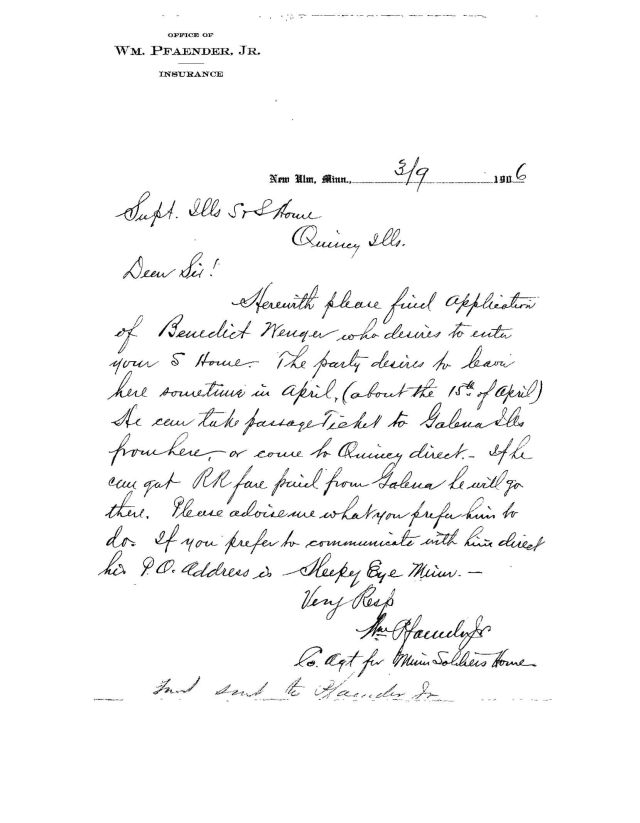 OFFICE OF
WM. PFAENDER, JR.
INSURANCE
New Ulm, Minn., 3/9 1906
Supt. Ills S & S Home
Quincy Ills.
Dear Sir!
Herewith please find application
of Benedict Wenger who desires to enter
your S Home. The party desires to leave
here sometime in April, (about the 15th of April)
He can take passage Ticket to Galena Ills
from here, or come to Quincy direct. - If he
can get RR fare paid from Galena he will go
there. Please advise me what you prefer him to
do. If you prefer to communicate with him direct
his P.O. address is Sleepy Eye Minn. -
Very Resp
Wm Pfaender Jr
Co. Agt for Minn Soldiers Home
sent to Pfaender Jr